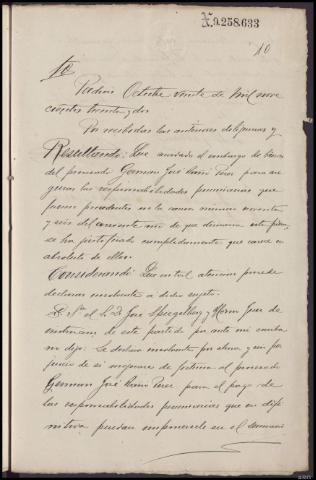 N.0.258.633
10
Padrón Octubre veinte de mil nove
cientos treinta y dos
Por recibidas las anteriores diligencias y
Resultando: Que acordado el embargo de bienes
del procesado German José Ramí Perez para ase
gurar las responsabilidades pecuniarias que
fueren procedentes en la causa número noventa
y seis del corriente año de que dimana esta pieza,
se ha justificado cumplidamente que carece en
absoluto de ellos.
Considerando: Que en tal atencion procede
declarar insolvente a dicho sujeto.
El Sr. D. José Spiegelberg y Horno Juez de
instruccion de este partido por ante mí
dijo: Se declara insolvente por ahora y sin per
juicio de si mejorare de fortuna al procesado
German José Ramí Perez para el pago de
las responsabilidades pecuniarias que en defi
nitiva puedan imponersele en el sumario